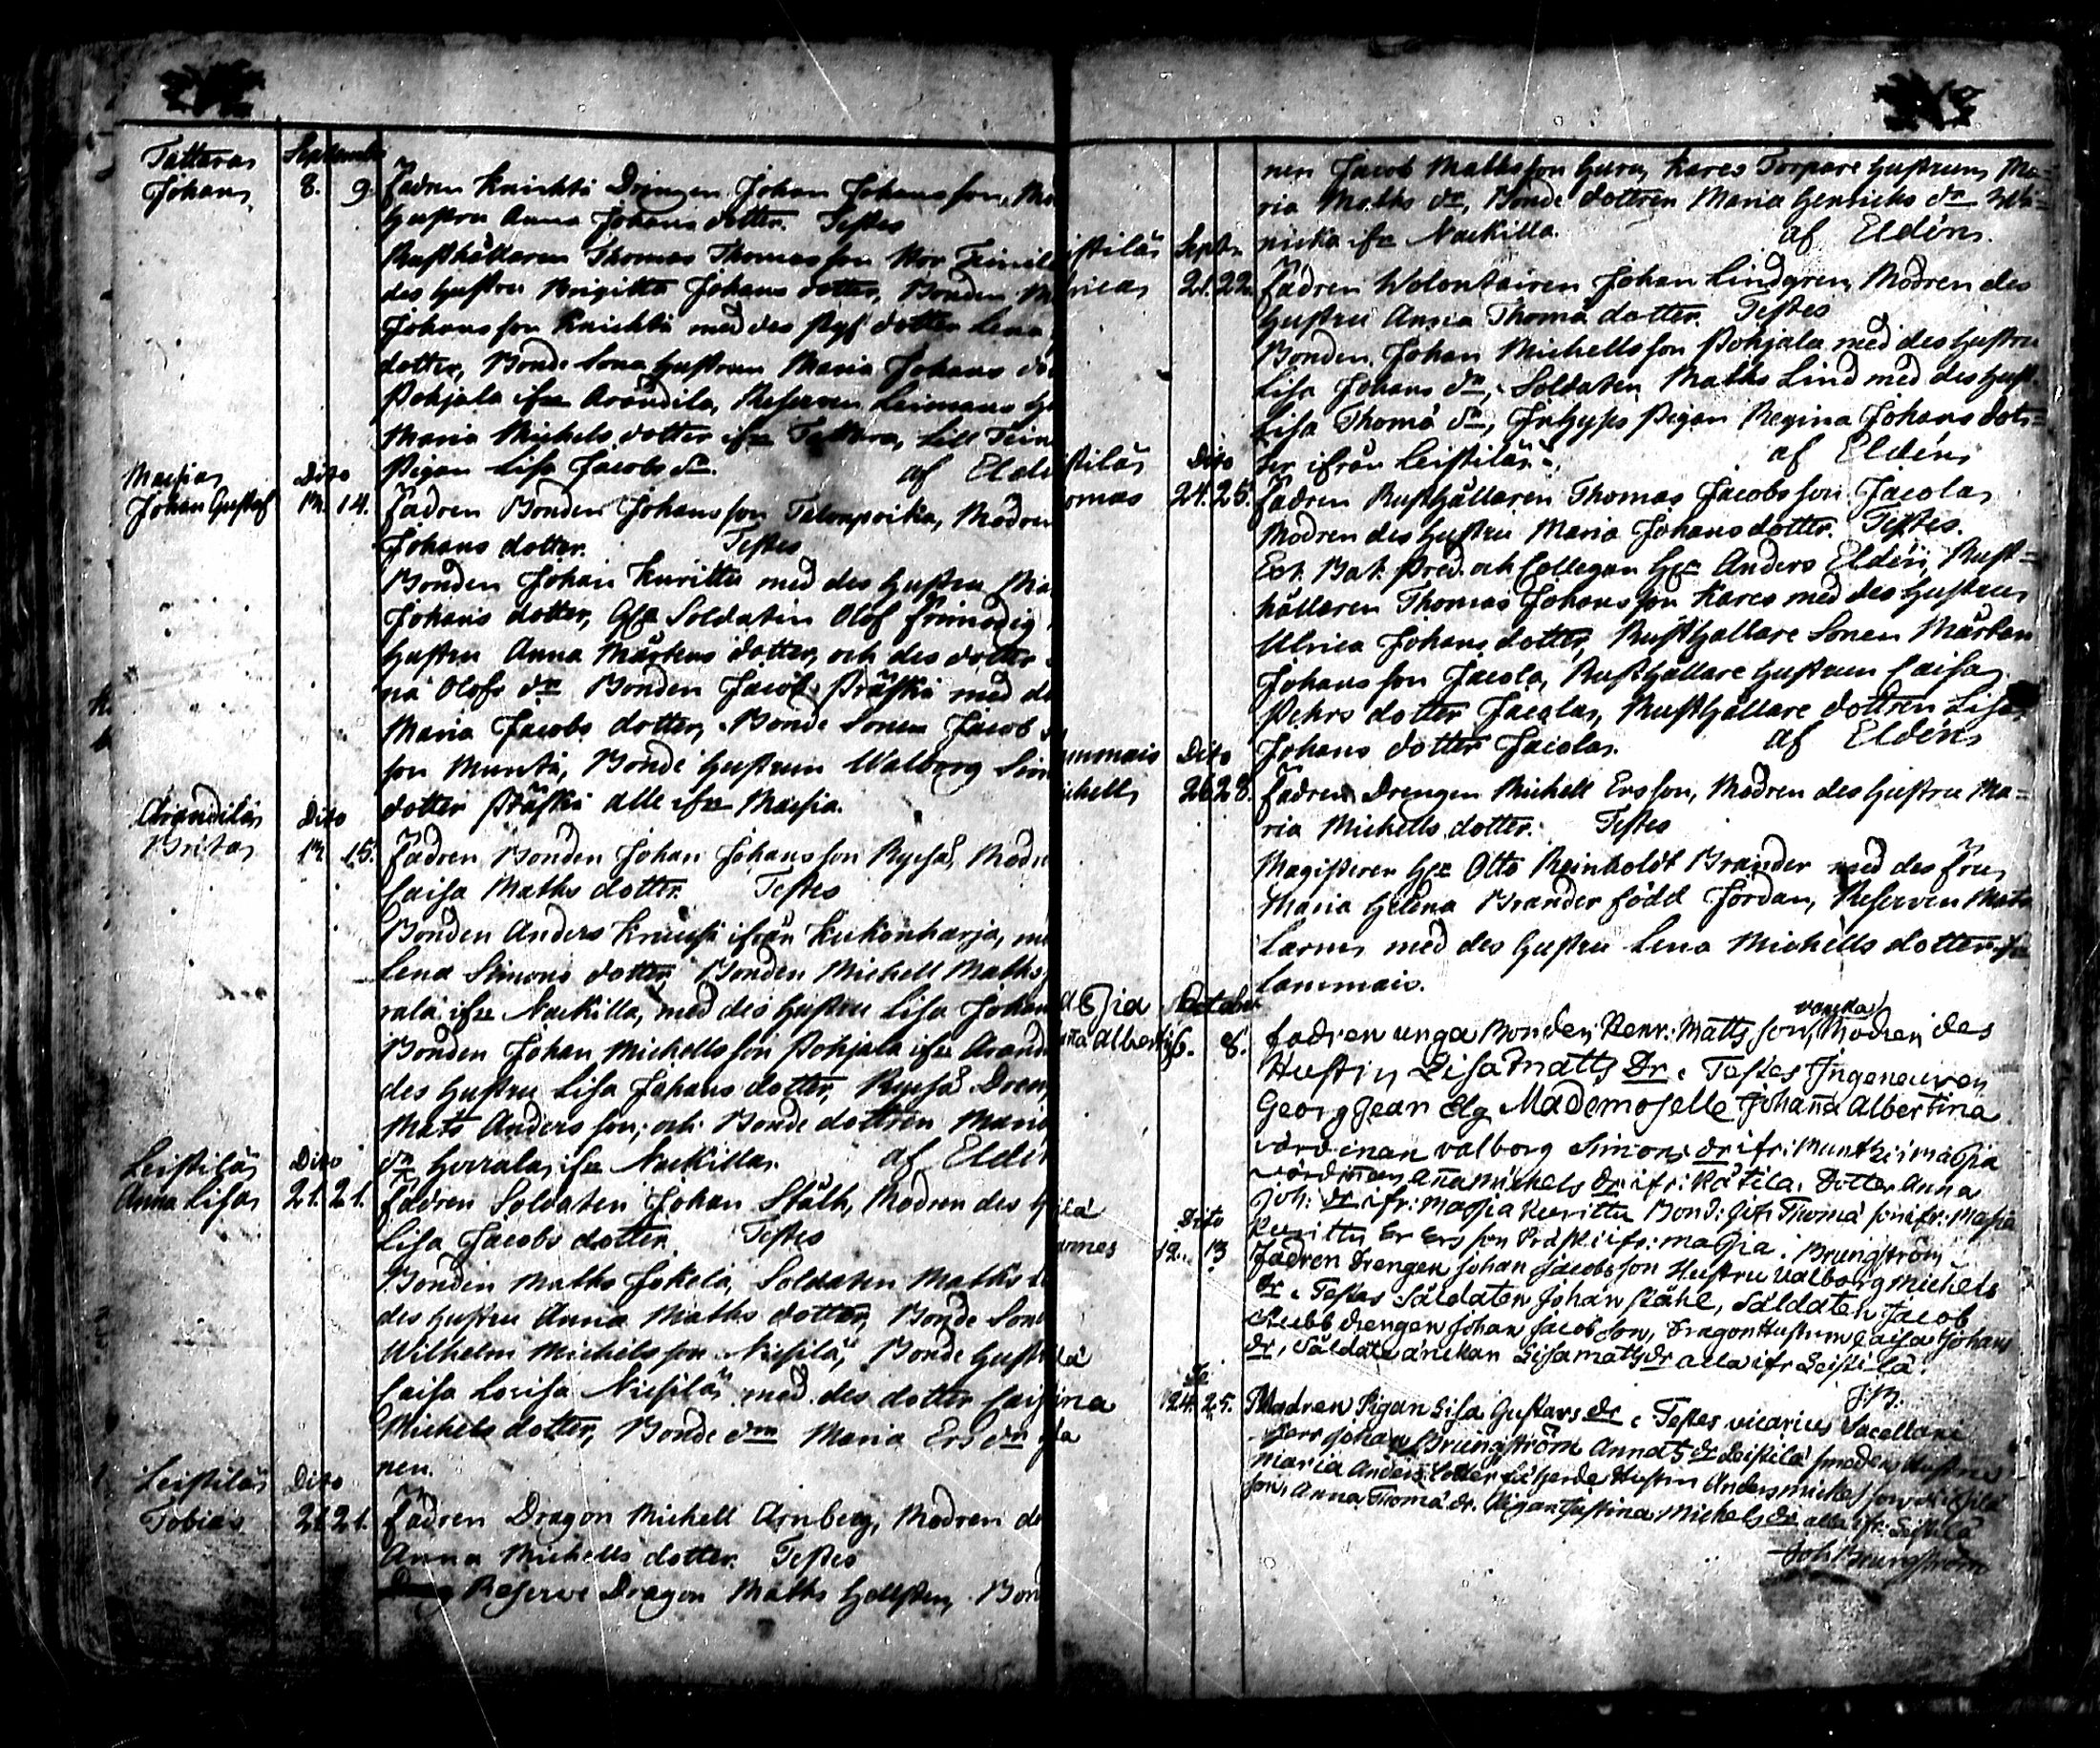 Tattara Septembr
Johan 8. 9. Fadren Knichti Drengen Johan Johansson, Mo
Hustru Anna Johans dotter. Testes
Rusthållaren Thomas Thomasson Stor Teinilä
des Hustru Brigitta Johans dotter, Bonden
Johansson Knichti med des styf dotter Lena
dotter, Bonde Sona Hustrun Maria Johans do
Pohjala ifrn Arandila, Reserven Leinmans
Maria Michels dotter ifrn Tattara, Lill Tein
Pigan Lisa Jacobs dr. af Eldé
Maisia Dito
Johan Gustaf 13. 14. Fadren Bonden Johansson Talonpoika, Modren
Johans dotter. Testes
Bonden Johan Kurittu med des Hustru Ma
Johans dotter, Soldaten Olof Frimodig
Hustru Anna Mårtens dotter, och des dotter
na Olofs dr Bonden Jacob Präski med de
Maria Jacobs dotter, Bonde Sonen Jacob
son Muntti, Bonde Hustrun Walborg Sim
dotter Präski alle ifrn Maisia.
Arandila Dito
Brita 13. 15. Fadren Bonden Johan Johansson Ryssä, Modr
Caisa Matts dotter. Testes
Bonden Anders Krausi ifrån Kukonharja, me
Lena Simons dotter, Bonden Michell Matts
rala ifrn Nackilla, med des Hustru Lisa Johan
Bonden Johan Michellsson Pohjala ifrn Arand
des Hustru Lisa Johans dotter, Ryssä Dren
Mats Andersson, och Bonde dottren Maria
dr Horrala, ifrn Nackilla. af Eldé
Leistilä Dito
Anna Lisa 21. 21. Fadren Soldaten Johan Ståhl, Modren des H
Lisa Jacobs dotter. Testes
Bonden Matts Jokela, Soldaten Matts
des Hustru Anna Matts dotter, Bonde Son
Wilhelm Michelsson Niesilä, Bonde Hustr
Caisa Lovisa Niesilä, med des dotter
Michels dotter, Bonde drn Maria Ers dr
nen.
Leistilä Dito
Tobias 21. 21. Fadren Dragon Michell Arnberg, Modren de
Anna Michells dotter. Testes
Reserve Dragon Matts Hellsten, Bon
nen Jacob Mattsson Hura, Kares Torpare Hustrun, Ma=
ria Matts dr, Bonde dottren Maria Henrichs dr
nicka ifrn Nackilla. af Eldén.
istilä Septr
ricas 21. 22. Fadren Wolontairen Johan Lindgren, Modren des
Hustru Anna Thomä dotter. Testes
Bonden Johan Michellsson Pohjala med des Hustru
Lisa Johans dr, Soldaten Matts Lind med des Hust.
Lisa Thomä dr, Inhyses Pigan Regina Johans dot=
ter ifrån Leistilä. af Eldén
stilä Dito
omas 24. 25. Fadren Rusthållaren Thomas Jacobsson Jacola,
Modren des Hustru Maria Johans dotter. Testes.
Ext. Bat. Pred. och Collegan Hr Anders Eldén, Rust=
hållaren Thomas Johansson Kares med des Hustru
Ulrica Johans dotter, Rusthållare Sonen Mårten
Johansson Jacola, Rusthållare Hustrun Caisa
Pehrs dotter Jacola, Rusthållare dottren Lisa
Johans dotter Jacola. af Eldén
ammais Dito
ichell 26. 28. Fadren Drengen Michell Ersson, Modren des Hustru Ma=
ria Michells dotter. Testes
Magisteren Hr Otto Reinholdt Brander med des Fru
Maria Helena Brander född Jordan, Reserven Mats
Larnes med des Hustru Lena Michells dotter ifrn
Lammais.
asia October
Albert 6. 8. fadren unga Bonden Henr: Mattsson, Modren des
Hustru Lisa Matts Dr. Testes Ingeneuren
Georg Jean Elg Mademoselle Johana Albertina
värdinan valborg Simons dr ifr: Muntti i masia
värdinan Anna Michels dr ifr: Kätila. Dotter Anna
Joh: dr ifr: Massia Kurittu Bond: Thomä son ifr: Massia
Kurittu Er Ersson Präski ifr: massia. Brungström
ilä Dito
annes 12. 13 Fadren Drengen Johan Jacobsson Hustru Valborg Michels
dr. Testes Saldaten Johan Ståhl, Saldaten Jacob
Stubb drengen Johan Jacobson, Dragon Hustrun Caisa Johans
dr, Saldate änckan Lisa matts dr alla ifr Leistilä.
J B.
lä Do
ina 24. 25. Madren Pigan Lisa Gustavs dr. Testes vicarius Sacellani
Herr Johan Brungström Anna dr Leistilä smeden Hustru
Maria Anders dotter Hustru Anders
son, Anna Thomä dr. Pigan Justina Michels dr alla ifr: Leistilä
Joh Brungström